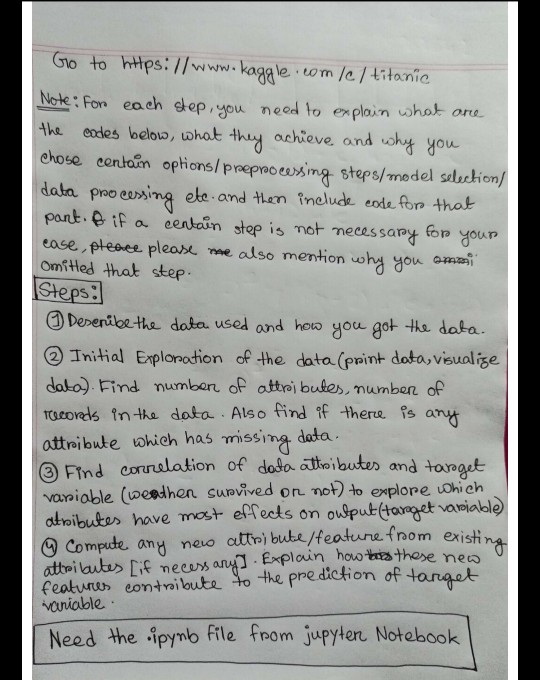 Go to https://www.kaggle.com/c/titanic
Note: For each step, you need to explain what are
the codes below, what they achieve and why you
chose certain options/preprocessing steps/model selection/
data processing etc. and then include code for that
part. if a certain step is not necessary for your
case, please also mention why you
omitted that step.
Steps:
① Describe the data used and how you got the data.
② Initial Exploration of the data (print data, visualize
data). Find number of attributes, number of
records in the data. Also find if there is any
attribute which has missing data.
③ Find correlation of data attributes and target
variable (weather survived or not) to explore which
atributes have most effects on output (target variable)
④ Compute any new attribute/feature from existing
attributes [if necessary]. Explain how these new
features contribute to the prediction of target
variable.
Need the .ipynb file from jupyter Notebook